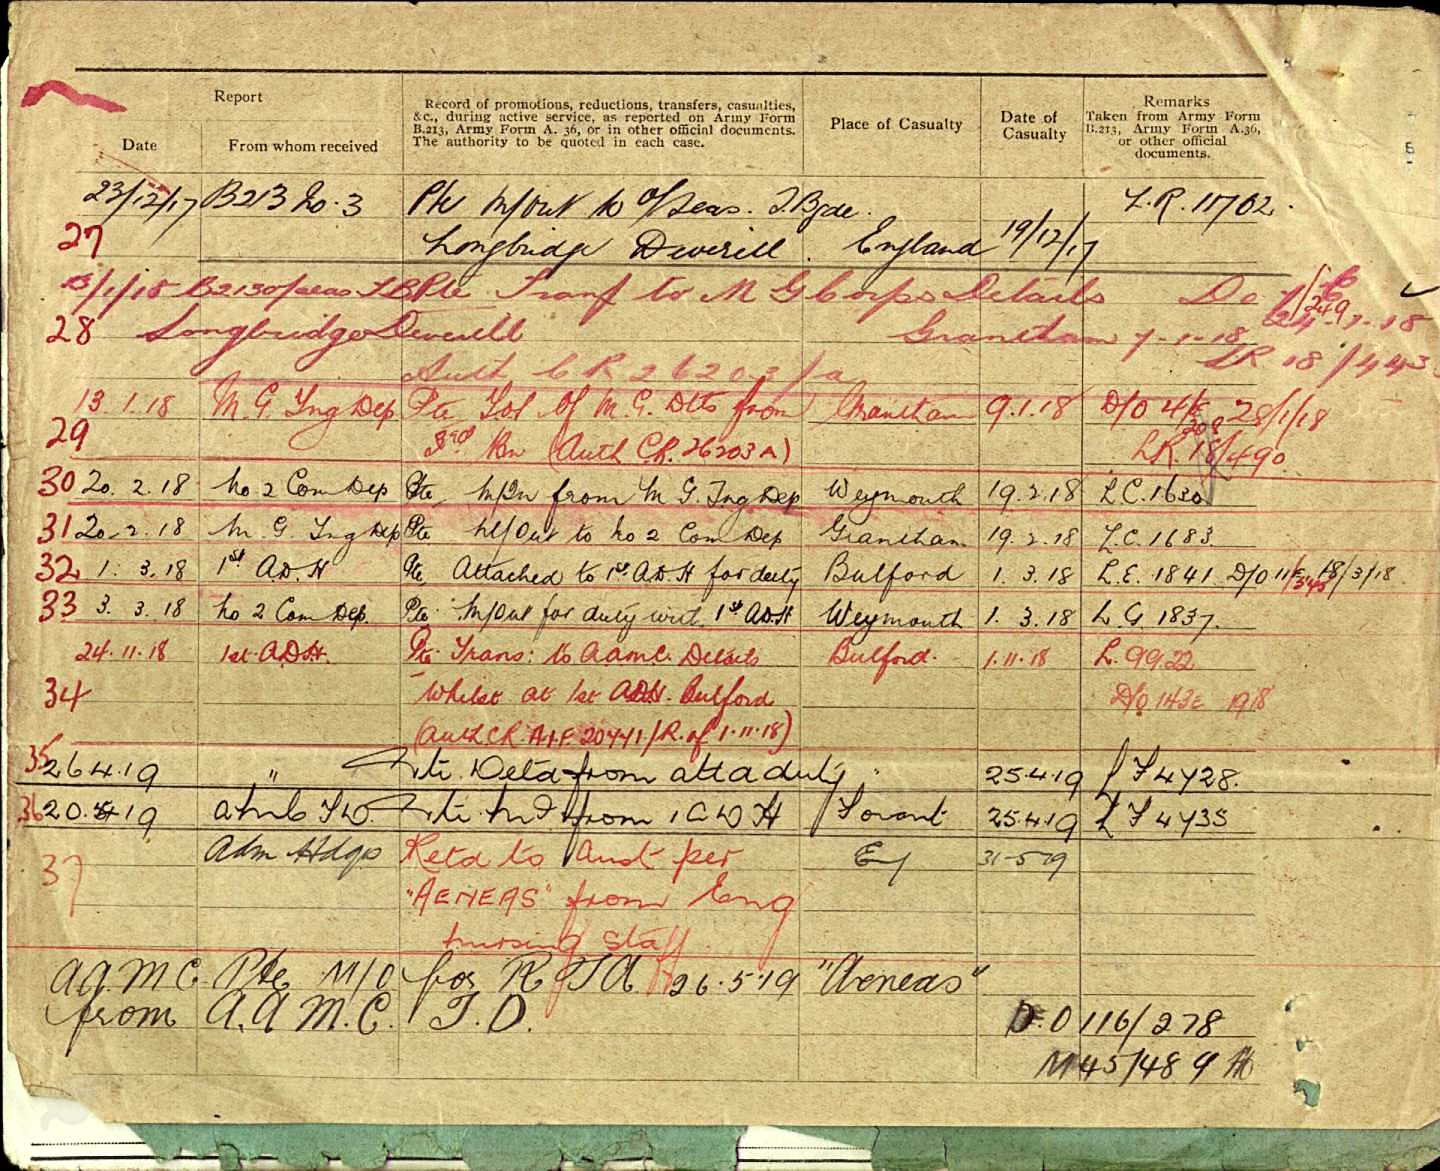 Report
Record of promotions, reductions, transfers, casualties,
&c., during active service, as reported on Army Form
B.213, Army Form A. 36, or in other official documents.
The authority to be quoted in each case.
Place of Casualty
Date of
Casualty
Remarks
Taken from Army Form
B.213, Army Form A.36,
or other official
documents.
Date
From whom received
23/12/17 B213 No. 3 Pte M/Out to O/Seas. T. Bgde. L.R. 11702.
27 Longbridge Deverill. England 19/12/17
/1/18 B213 O/seas Pte Transf to M G Corps Details Do
28 Longbridge Deverill Grantham 7-1-18 1-18
Auth C R 26203/a LR 18/443
13.1.18 M. G. Tng Dep Pte of M. G. Dtls from Grantham 9.1.18 D/O 4/E 28/1/18
29 3rd Bn (Auth C.R. 26203A) LR. 18/490
30 20.2.18 No 2 Com Dep Pte M/In from M G. Tng Dep Weymouth 19.2.18 L.C. 1630
31 20.2.18 M. G Tng Dep Pte M/Out to No 2 Com Dep Grantham 19.2.18 L.C. 1683
32 1.3.18 1st A.D.H Pte Attached to 1st A.D.H for duty Bulford 1.3.18 L.E. 1841 D/O 11/E 18/3/18
33 3.3.18 No 2 Com Dep. Pte M/Out for duty with 1st A.D.H Weymouth 1.3.18 L G. 1837.
24.11.18 1st A.D.H. Pte Trans: to A.A.M.C. Details Bulford. 1.11.18 L. 9922
34 Whilst at 1st A.D.H. Bulford D/O 143E 1918
(Auth C.R. A.I.F. 20441/R. of 1.11.18)
35 26.4.19 " Pte. Detd from atta duty " 25.4.19 L F 4728.
36 20.4.19 Pte. M.I from Fovant 25.4.19 L F 4735
Adm Hdqs Retd to Aust per Eng 31-5-19
37 "AENEAS" from Eng
nursing staff.
A.A.M.C. Pte M/O for R T A 26.5.19 "Aeneas"
from A.A.M.C. T.D. D.O 116/278
M45/489